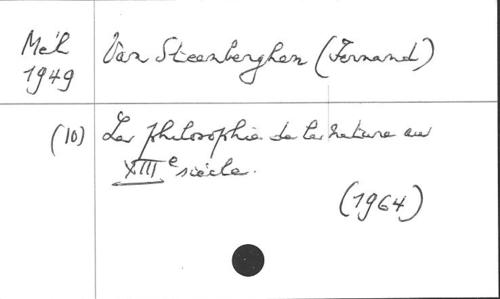 Mél
1949
Van Steenberghen (Fernand)
(10) La philosophie de la nature au
XIIIe siècle.
(1964)